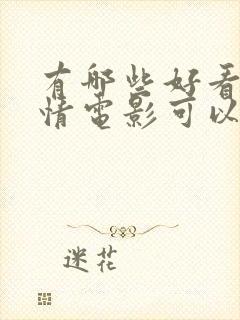 有哪些好看
情电影可以
迷花